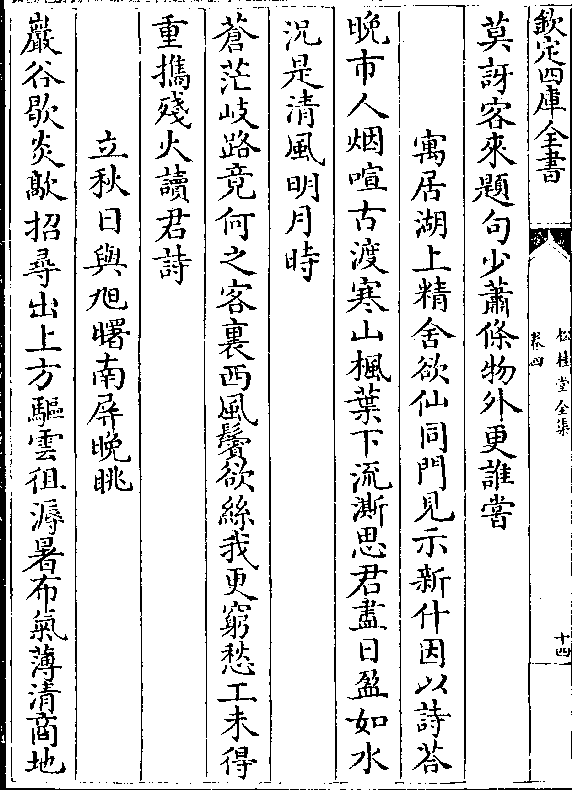 欽定四庫全書
松桂堂全集
卷四
十四
莫訝客來題句少蕭條物外更誰嘗
寓居湖上精舍欲仙同門見示新什因以詩荅
晚市人烟喧古渡寒山楓葉下流澌思君盡日盈如水
况是清風明月時
蒼茫岐路竟何之客裏西風鬢欲絲我更窮愁工未得
重攜殘火讀君詩
立秋日與旭曙南屏晚眺
巖谷歇炎歊招尋出上方驅雲徂溽暑布氣薄清商地